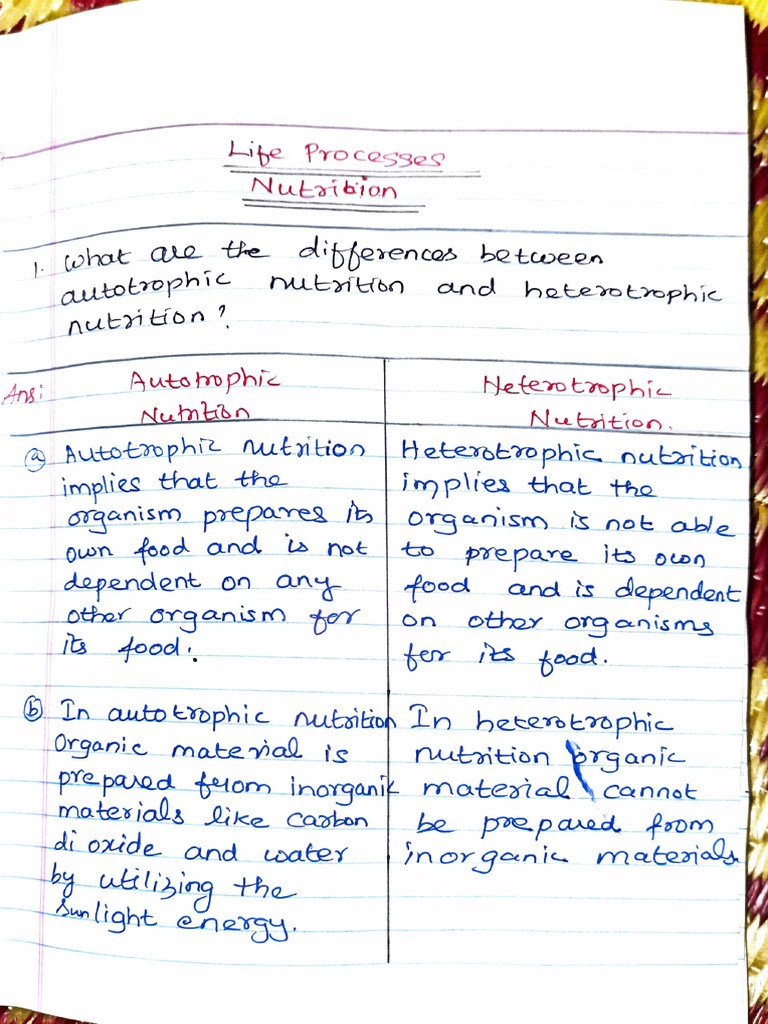 Life Processes
Nutrition
1. What are the differences between
autotrophic nutrition and heterotrophic
nutrition?
Ans:
Autotrophic
Nutrition
Heterotrophic
Nutrition.
ⓐ Autotrophic nutrition
implies that the
organism prepares its
own food and is not
dependent on any
other organism for
its food.
Heterotrophic nutrition
implies that the
organism is not able
to prepare its own
food and is dependent
on other organisms
for its food.
ⓑ In autotrophic nutrition
Organic material is
prepared from inorganic
materials like carbon
di oxide and water
by utilizing the
sunlight energy.
In heterotrophic
nutrition organic
material cannot
be prepared from
inorganic materials.